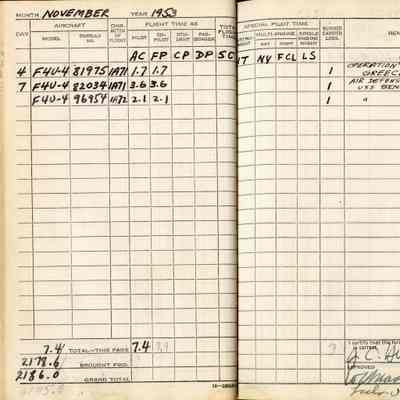 MONTH NOVEMBER YEAR 1953
DAY AIRCRAFT MODEL SERIAL NO. CHAR- ACTER OF FLIGHT FLIGHT TIME AS PILOT CO- PILOT STU- DENT PAS- SENGER TOTAL FLIGHT TIME SPECIAL PILOT TIME MULTI-ENGINE SINGLE ENGINE NUMBER CARRIER LDGS. REM
AC FP CP DP SC IT NV FCL LS
4 F4U-4 81975 1A71 1.7 1.7 1 OPERATION GREECE
7 F4U-4 82034 1A71 3.6 3.6 1 AIR DEFENS USS BEN
F4U-4 96954 1A72 2.1 2.1 1 "
7.4 TOTAL—THIS PAGE 7.4
2178.6 BROUGHT FWD.
2186.0 GRAND TOTAL
I certify that the
APPROVED